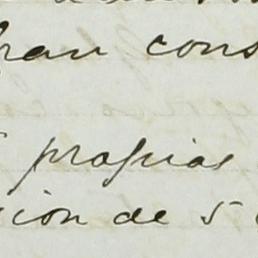 ran cons
propias
sion de 5